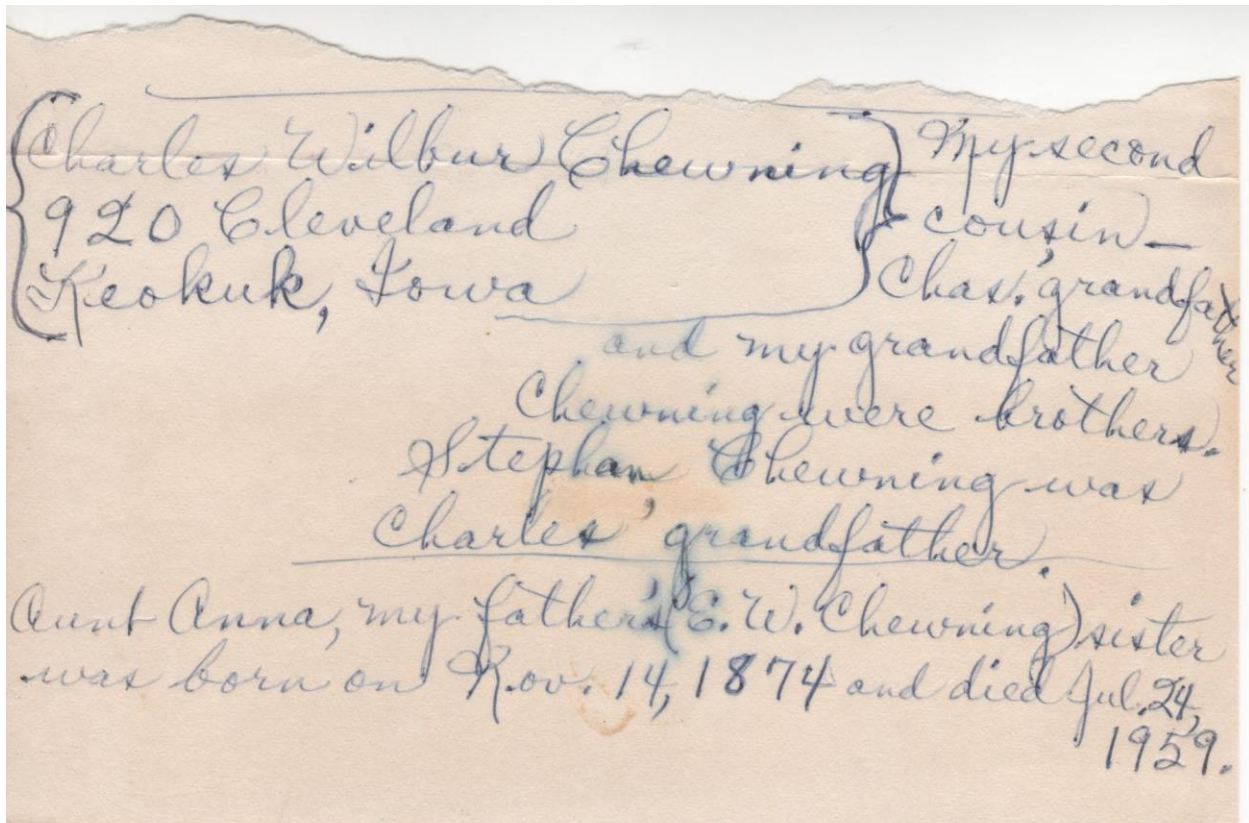 Charles Wilbur Chewning
920 Cleveland
Keokuk, Iowa
My second
cousin—
Chas.' grandfather
and my grandfather
Chewning were brothers.
Stephan Chewning was
Charles' grandfather.
Aunt Anna, my father's (E. W. Chewning) sister
was born on Nov. 14, 1874 and died Jul. 24,
1959.